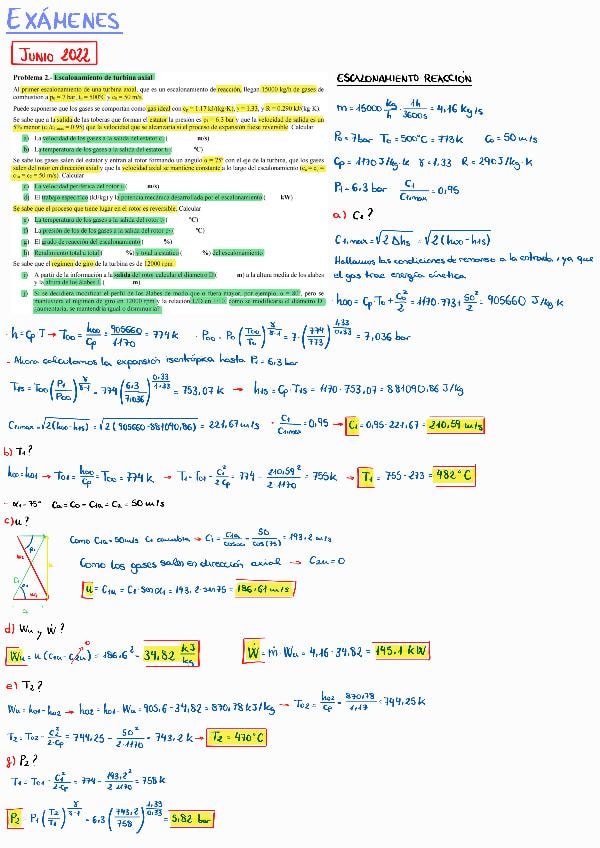 EXÁMENES
JUNIO 2022
Problema 2.- Escalonamiento de turbina axial
Al primer escalonamiento de una turbina axial, que es un escalonamiento de reacción, llegan 15000 kg/h de gases de
combustion a p₀ = 7 bar, t₀ = 500°C y c₀ = 50 m/s.
Puede suponerse que los gases se comportan como gas ideal con cp = 1.17 kJ/(kg·K), γ = 1.33, y R = 0.290 kJ/(kg·K).
Se sabe que a la salida de las toberas que forman el estator la presión es p₁ = 6.3 bar y que la velocidad de salida es un
5% menor (c₁/c₁max = 0.95) que la velocidad que se alcanzaría si el proceso de expansión fuese reversible. Calcular
a) La velocidad de los gases a la salida del estator c₁ ( m/s)
b) La temperatura de los gases a la salida del estator t₁ ( °C)
Se sabe que los gases salen del estator y entran al rotor formando un ángulo α = 75° con el eje de la turbina, que los gases
salen del rotor en dirección axial y que la velocidad axial se mantiene constante a lo largo del escalonamiento (cₐ = c₀ =
c₁ₐ = c₂ = 50 m/s). Calcular
c) La velocidad periférica del rotor u ( m/s)
d) El trabajo específico (kJ/kg) y la potencia mecánica desarrollada por el escalonamiento ( kW)
Se sabe que el proceso que tiene lugar en el rotor es reversible. Calcular
e) La temperatura de los gases a la salida del rotor t₂ ( °C)
f) La presión de los de los gases a la salida del rotor p₂ ( )
g) El grado de reacción del escalonamiento ( %)
h) Rendimiento total a total ( %) y total a estático ( %) del escalonamiento
Se sabe que el régimen de giro de la turbina es de 12000 rpm
i) A partir de la información a la salida del rotor calcular el diámetro D ( m) a la altura media de los álabes
y la altura de los álabes L ( m)
j) Si se decidiera modificar el perfil de los álabes de modo que α fuera mayor, por ejemplo, α = 80°, pero se
mantuviera el régimen de giro en 12000 rpm y la relación L/D en , como se modificaría el diámetro D
¿aumentaría, se mantendría igual o disminuiría?
ESCALONAMIENTO REACCIÓN
ṁ = 15000 kg/h · 1h/3600s = 4,16 kg/s
P₀ = 7bar T₀ = 500°C = 773K C₀ = 50 m/s
Cp = 1170 J/kg·K γ = 1.33 R = 290 J/kg·K
P₁ = 6.3 bar C₁/C₁max = 0,95
a) C₁?
C₁max = √2Δhs = √2(h₀₀-h₁s)
Hallamos las condiciones de remanso a la entrada, ya que
el gas trae energía cinética.
· h₀₀ = Cp T₀ + C₀²/2 = 1170·773 + 50²/2 = 905660 J/kg·K
· h = Cp T → T₀₀ = h₀₀/Cp = 905660/1170 = 774K · P₀₀ = P₀ (T₀₀/T₀)^γ/γ-1 = 7 (774/773)^1,33/0,33 = 7,036 bar
- Ahora calculamos la expansión isentrópica hasta P₁ = 6,3 bar
T₁s = T₀₀ (P₁/P₀₀)^γ-1/γ = 774 (6,3/7,036)^0,33/1,33 = 753,07 K → h₁s = Cp·T₁s = 1170·753,07 = 881090,86 J/kg
C₁max = √2(h₀₀-h₁s) = √2(905660-881090,86) = 221,67 m/s · C₁/C₁max = 0,95 → C₁ = 0,95·221,67 = 210,59 m/s
b) T₁?
h₀₀ = h₀₁ → T₀₁ = h₀₀/Cp = T₀₀ = 774 K → T₁ = T₀₁ - C₁²/2Cp = 774 - 210,59²/2·1170 = 755K → T₁ = 755-273 = 482°C
- α₁ = 75° Ca = C₀ = C₁a = C₂ = 50 m/s
c) u?
Como C₁a = 50m/s C₁ cambia → C₁ = C₁a/cosα₁ = 50/cos(75) = 193,2 m/s
Como los gases salen en dirección axial → C₂u = 0
u = C₁u = C₁·senα₁ = 193,2·sen75 = 186,61 m/s
d) Wu y Ẇ?
Wu = u (C₁u - C₂u) = 186,6² = 34,82 kJ/kg Ẇ = ṁ·Wu = 4,16·34,82 = 145.1 kW
e) T₂?
Wu = h₀₁-h₀₂ → h₀₂ = h₀₁-Wu = 905,6-34,82 = 870,78 kJ/kg → T₀₂ = h₀₂/Cp = 870,78/1,17 = 744,25 K
T₂ = T₀₂ - C₂²/2·Cp = 744,25 - 50²/2·1170 = 743,2 K → T₂ = 470°C
f) P₂?
T₁ = T₀₁ - C₁²/2Cp = 774 - 193,2²/2·1170 = 758 K
P₂ = P₁ (T₂/T₁)^γ/γ-1 = 6,3 (743,2/758)^1,33/0,33 = 5,82 bar